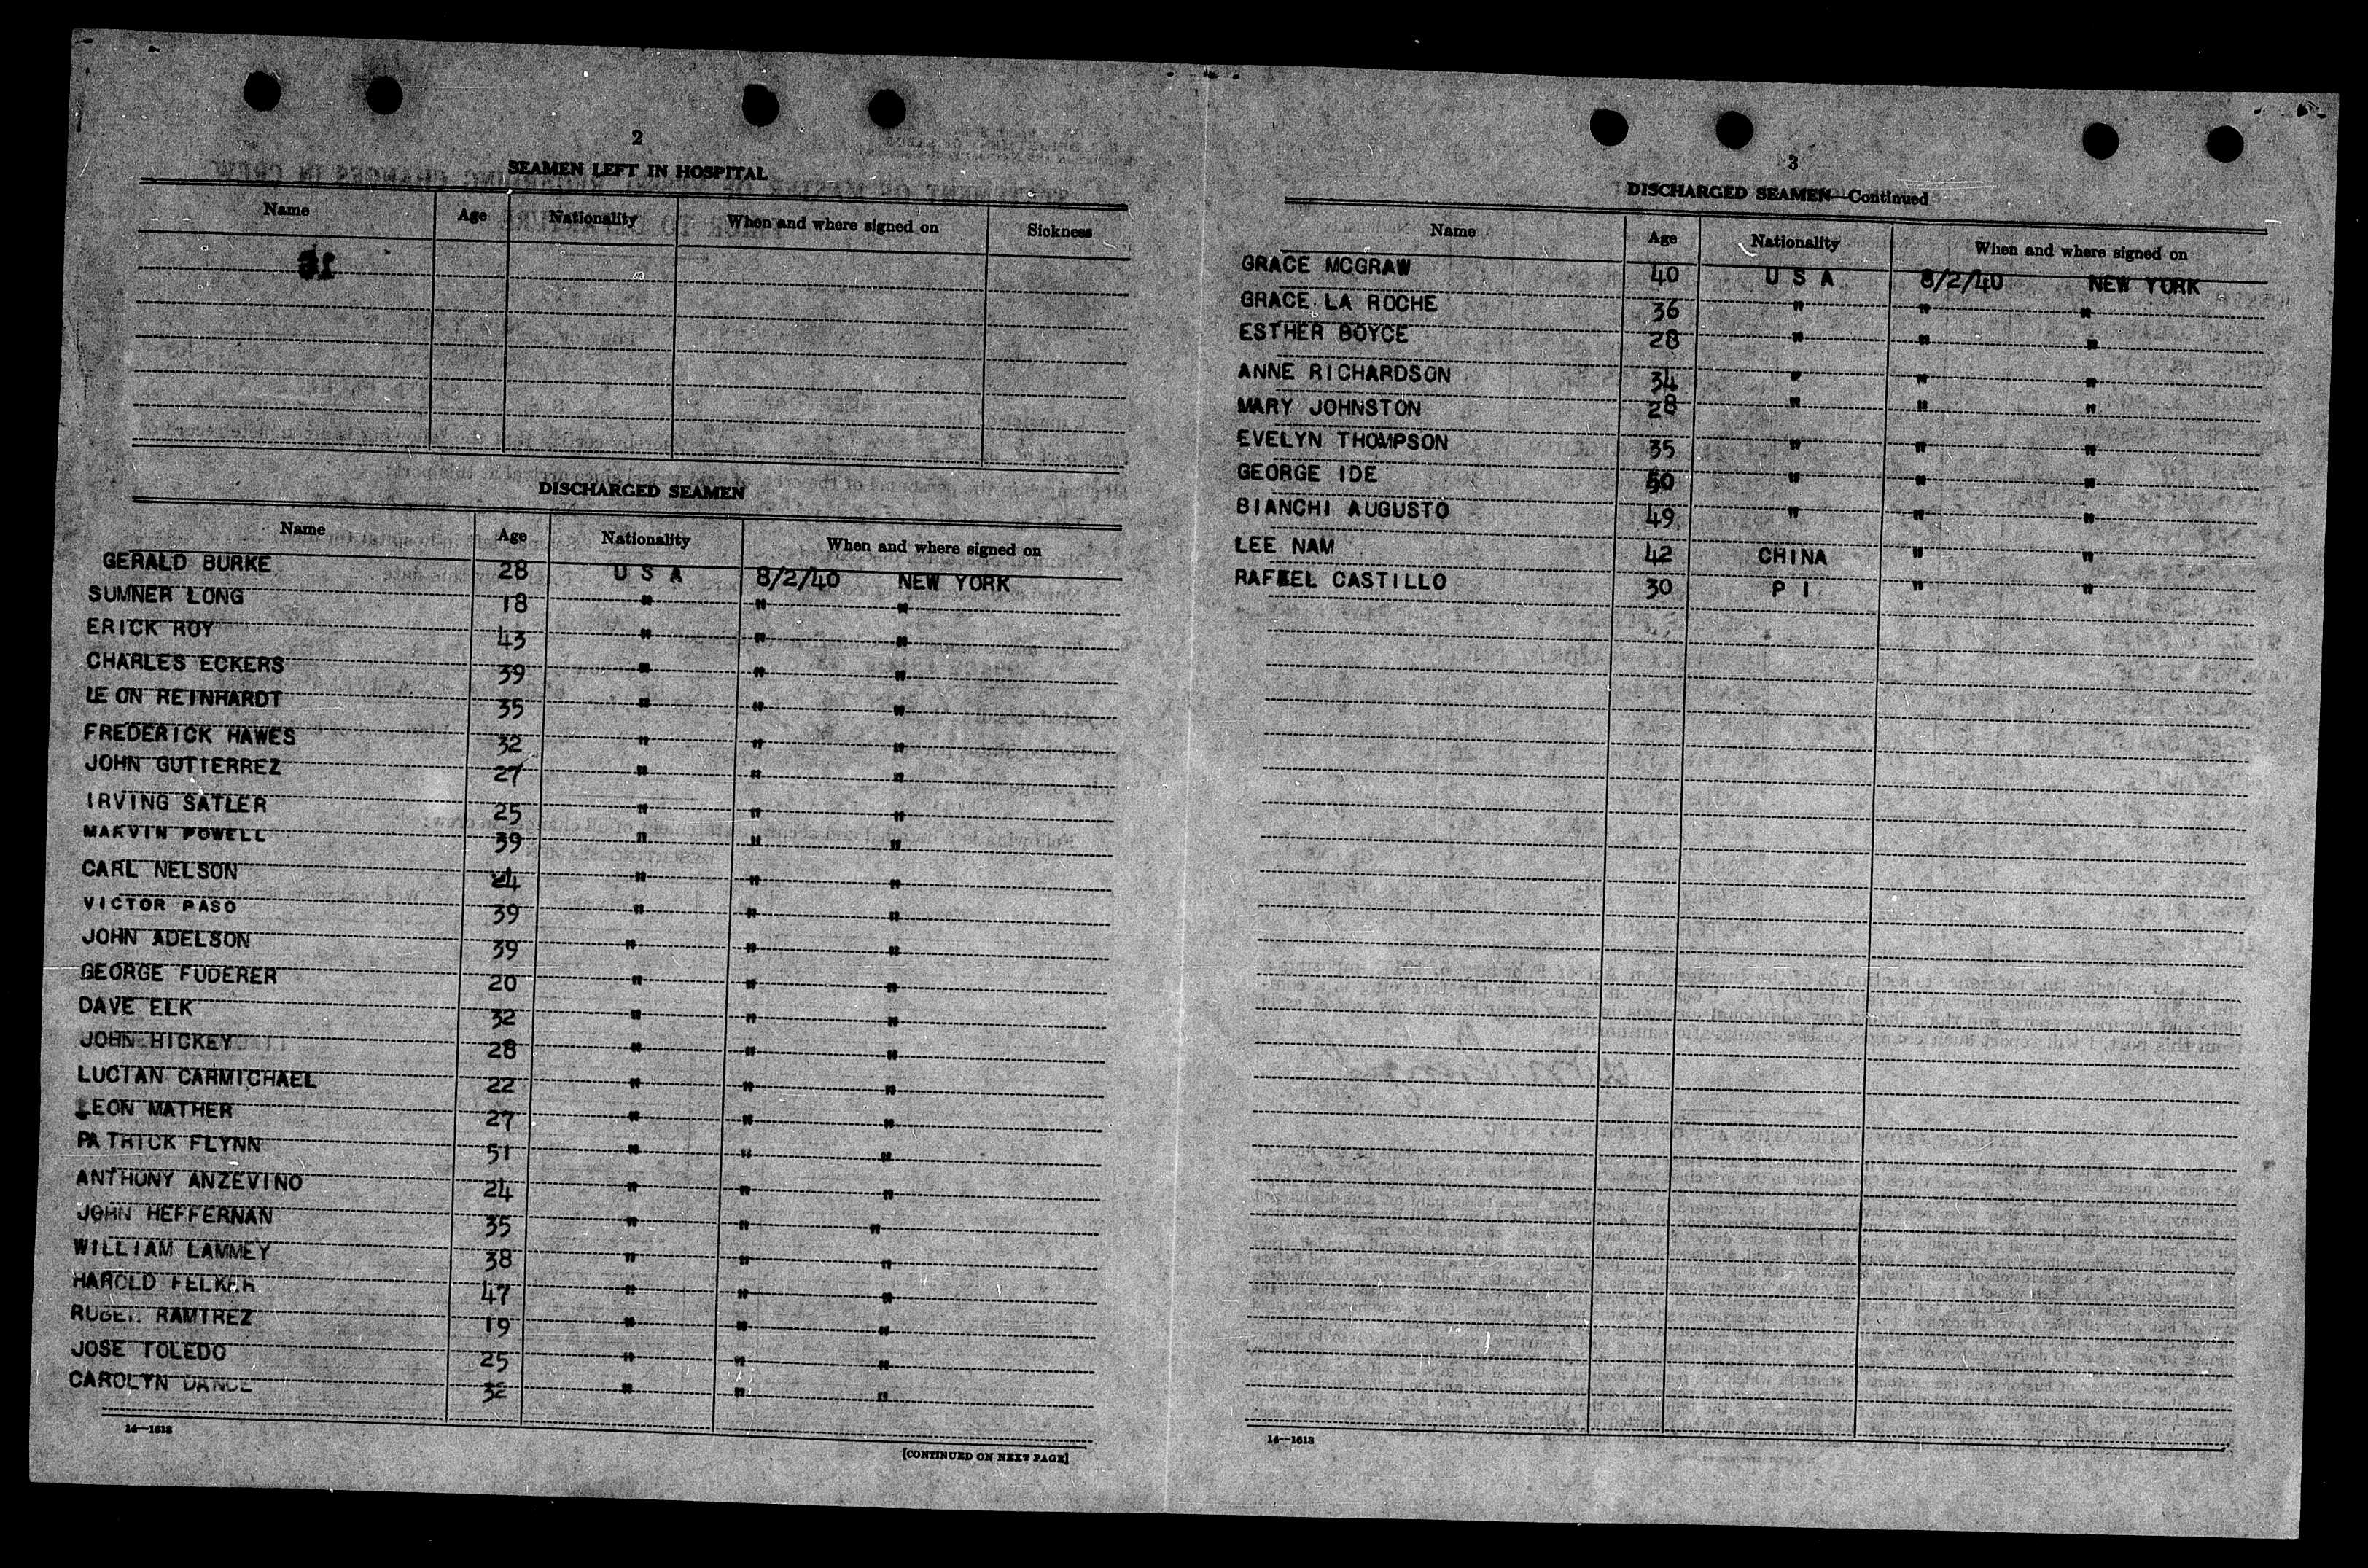 2
SEAMEN LEFT IN HOSPITAL
Name Age Nationality When and where signed on Sickness
DISCHARGED SEAMEN
Name Age Nationality When and where signed on
GERALD BURKE 28 U S A 8/2/40 NEW YORK
SUMNER LONG 18 " " "
ERICK ROY 43 " " "
CHARLES ECKERS 39 " " "
LEON REINHARDT 35 " " "
FREDERICK HAWES 32 " " "
JOHN GUTIERREZ 27 " " "
IRVING SATLER 25 " " "
MARVIN POWELL 39 " " "
CARL NELSON 24 " " "
VICTOR PASO 39 " " "
JOHN ADELSON 39 " " "
GEORGE FUDERER 20 " " "
DAVE ELK 32 " " "
JOHN HICKEY 28 " " "
LUCIAN CARMICHAEL 22 " " "
LEON MATHER 27 " " "
PATRICK FLYNN 51 " " "
ANTHONY ANZEVINO 24 " " "
JOHN HEFFERNAN 35 " " "
WILLIAM LAMMEY 38 " " "
HAROLD FELKER 47 " " "
RUBEN RAMIREZ 19 " " "
JOSE TOLEDO 25 " " "
CAROLYN DANCE 32 " " "
14—1613
[CONTINUED ON NEXT PAGE]
3
DISCHARGED SEAMEN—Continued
Name Age Nationality When and where signed on
GRACE MCGRAW 40 U S A 8/2/40 NEW YORK
GRACE LA ROCHE 36 " " "
ESTHER BOYCE 28 " " "
ANNE RICHARDSON 34 " " "
MARY JOHNSTON 28 " " "
EVELYN THOMPSON 35 " " "
GEORGE IDE 50 " " "
BIANCHI AUGUSTO 49 " " "
LEE NAM 42 CHINA " "
RAFAEL CASTILLO 30 P I " "
14—1613